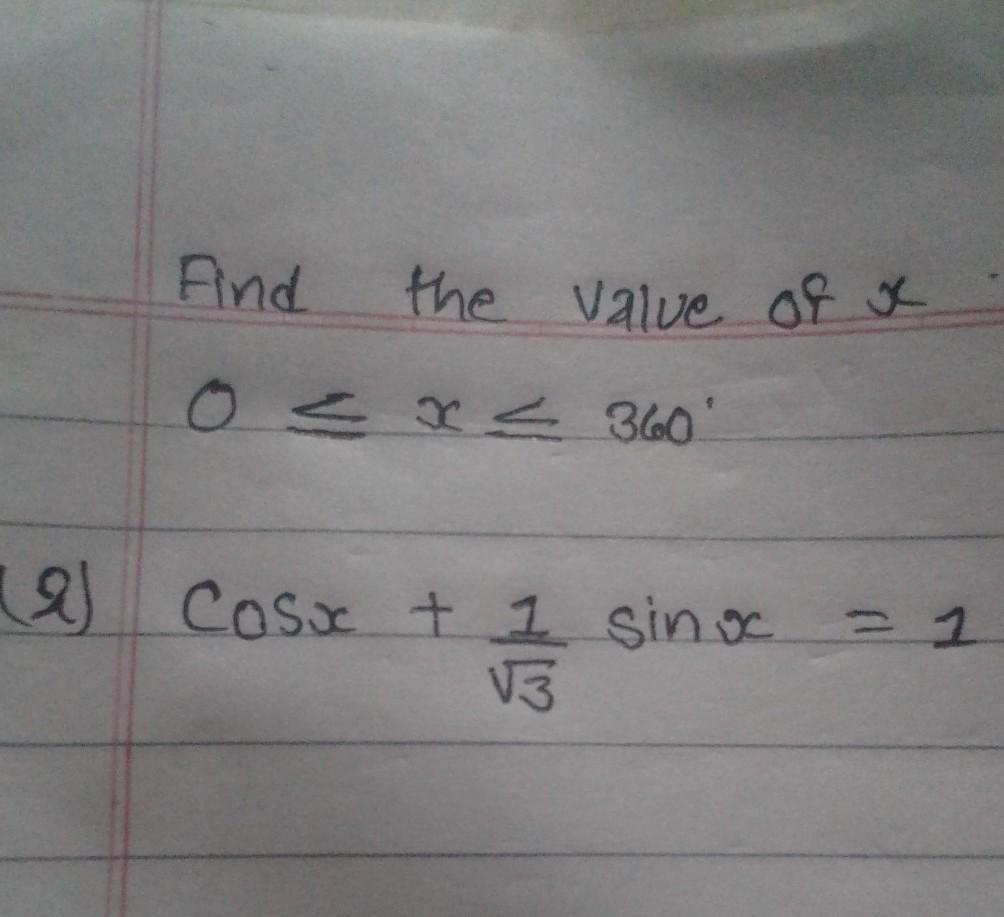 Find the value of x
0 ≤ x ≤ 360°
(2) Cosx + 1/√3 sinx = 1